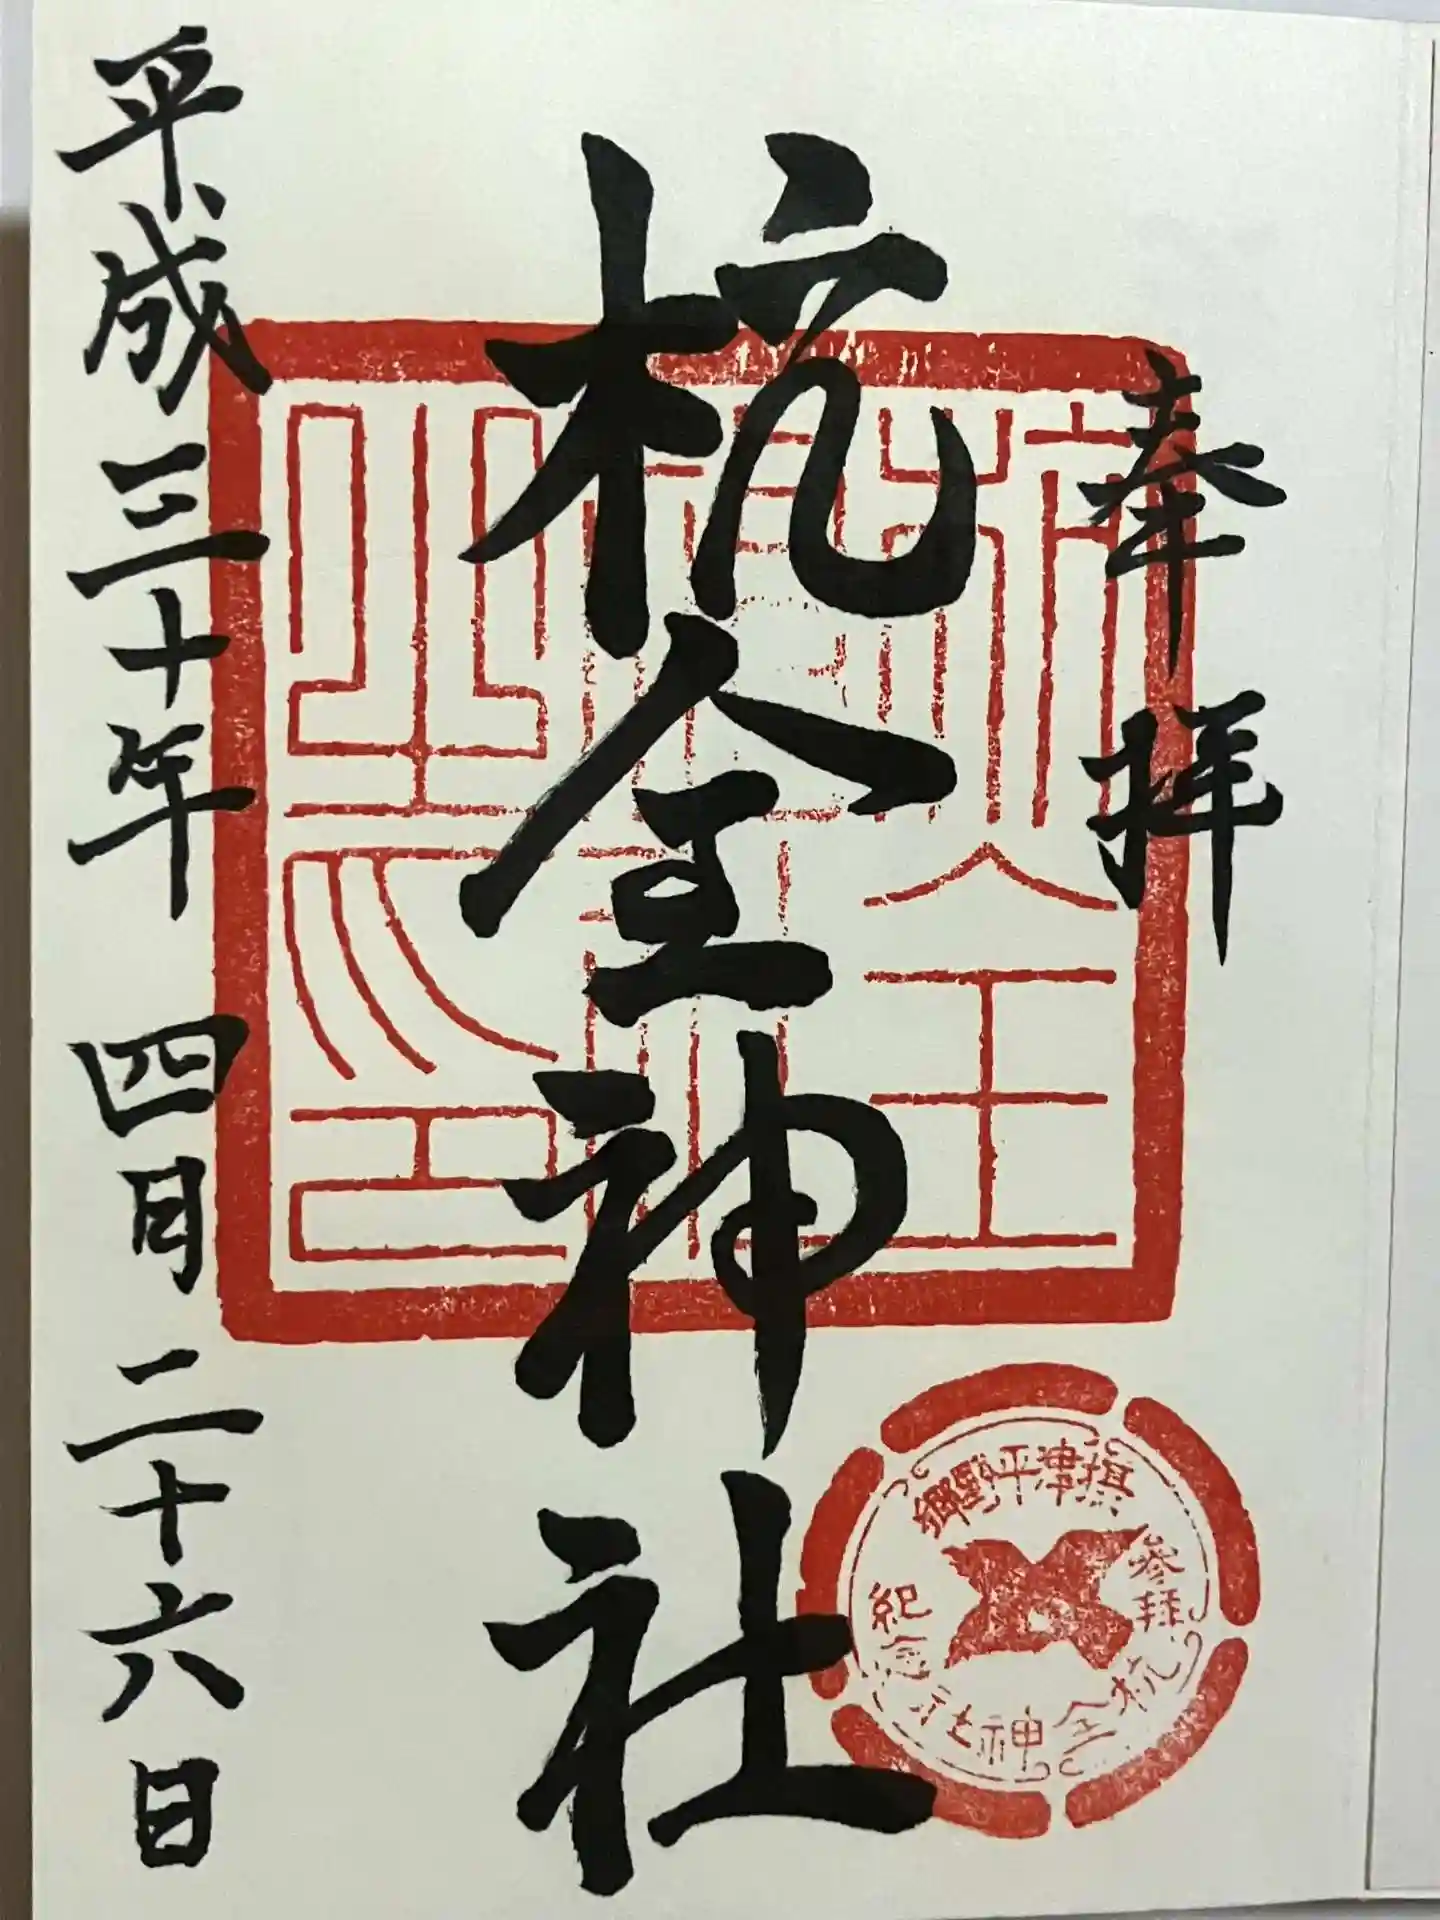 奉拝
杭全神社
平成三十年 四月二十六日
杭全神社之印
摂津平野郷
参拝
紀念
杭全神社